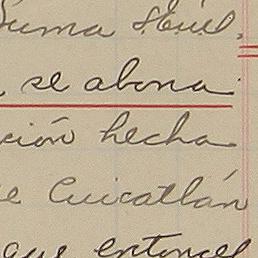 Suma
, se abona
ción hecha
e Cuicatlán
que entonces